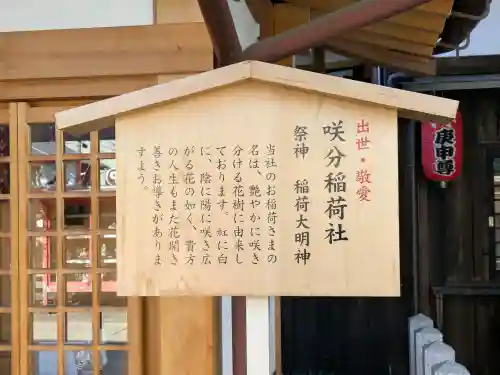 出世・敬愛
咲分稲荷社
祭神　稲荷大明神
当社のお稲荷さまの
名は、艶やかに咲き
分ける花樹に由来し
ております。紅に白
に、陰に陽に咲き広
がる花の如く、貴方
の人生もまた花開き
善きお導きがありま
すよう。
庚申尊